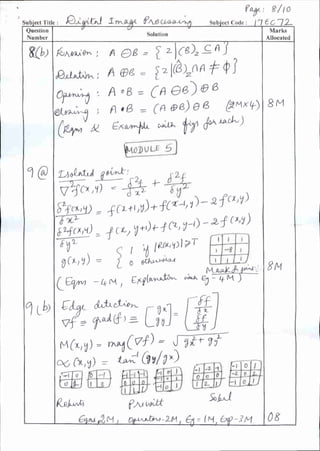 Page: 8/10
Subject Title : Digital Image Processing Subject Code : 17EC72
Question Number Solution Marks Allocated
8(b) Erosion : A ⊖ B = { z | (B)z ⊆ A }
Dilation : A ⊕ B = { z | (B̂)z ∩ A ≠ ϕ }
Opening : A ∘ B = (A ⊖ B) ⊕ B
Closing : A • B = (A ⊕ B) ⊖ B (2M×4) 8M
(Eqns & Example with figs for each)
MODULE 5
9 (a) Isolated point:
∇²f(x,y) = δ²f/δx² + δ²f/δy²
δ²f(x,y)/δx² = f(x+1,y) + f(x-1,y) - 2f(x,y)
δ²f(x,y)/δy² = f(x,y+1) + f(x,y-1) - 2f(x,y)
g(x,y) = { 1 if |R(x,y)| ≥ T
0 otherwise
1 1 1
1 -8 1
1 1 1
Mask for point
(Eqns - 4M, Explanation with Eg - 4M) 8M
9(b) Edge detection
∇f = grad(f) = [gx gy] = [δf/δx δf/δy]
M(x,y) = mag(∇f) = √gx² + gy²
α(x,y) = tan⁻¹(gy/gx)
-1 0 0 -1 -1 -1 -1 -1 0 1 -1 -2 -1 -1 0 1
0 1 1 0 0 0 0 -1 0 1 0 0 0 -2 0 2
1 1 1 -1 0 1 1 2 1 -1 0 1
Roberts Prewitt Sobel
Eqns 2M, operators-2M, Eg=1M, Exp-3M 08